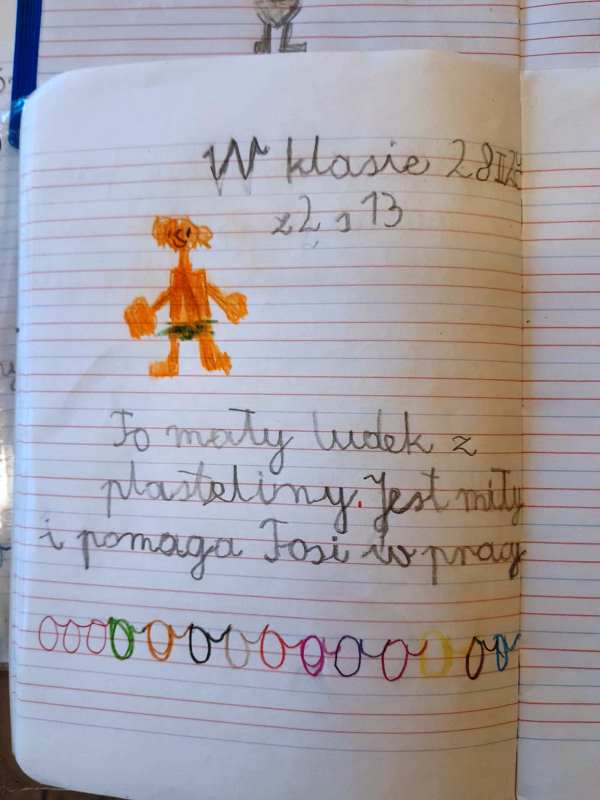 W klasie 28 II
z2 s 13
To mały ludek z
plasteliny. Jest miły
i pomaga Tosi w pracy